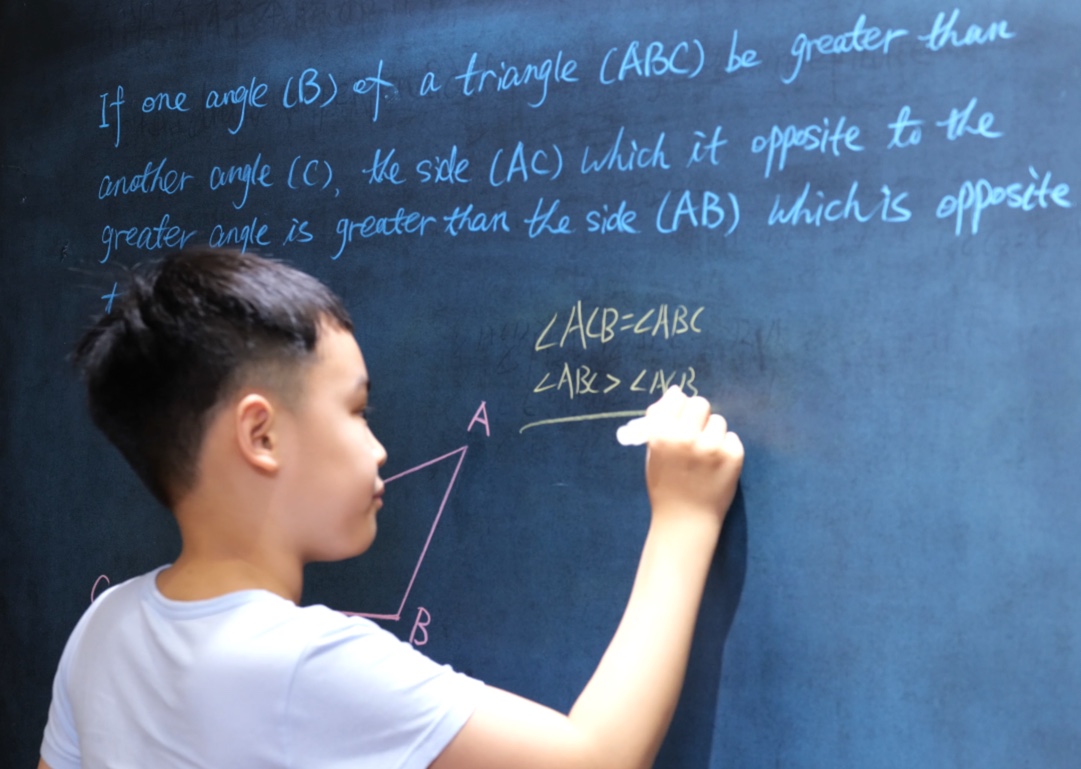 If one angle (B) of a triangle (ABC) be greater than
another angle (C), the side (AC) which it opposite to the
greater angle is greater than the side (AB) which is opposite
∠ACB=∠ABC
∠ABC>∠ACB
A
B